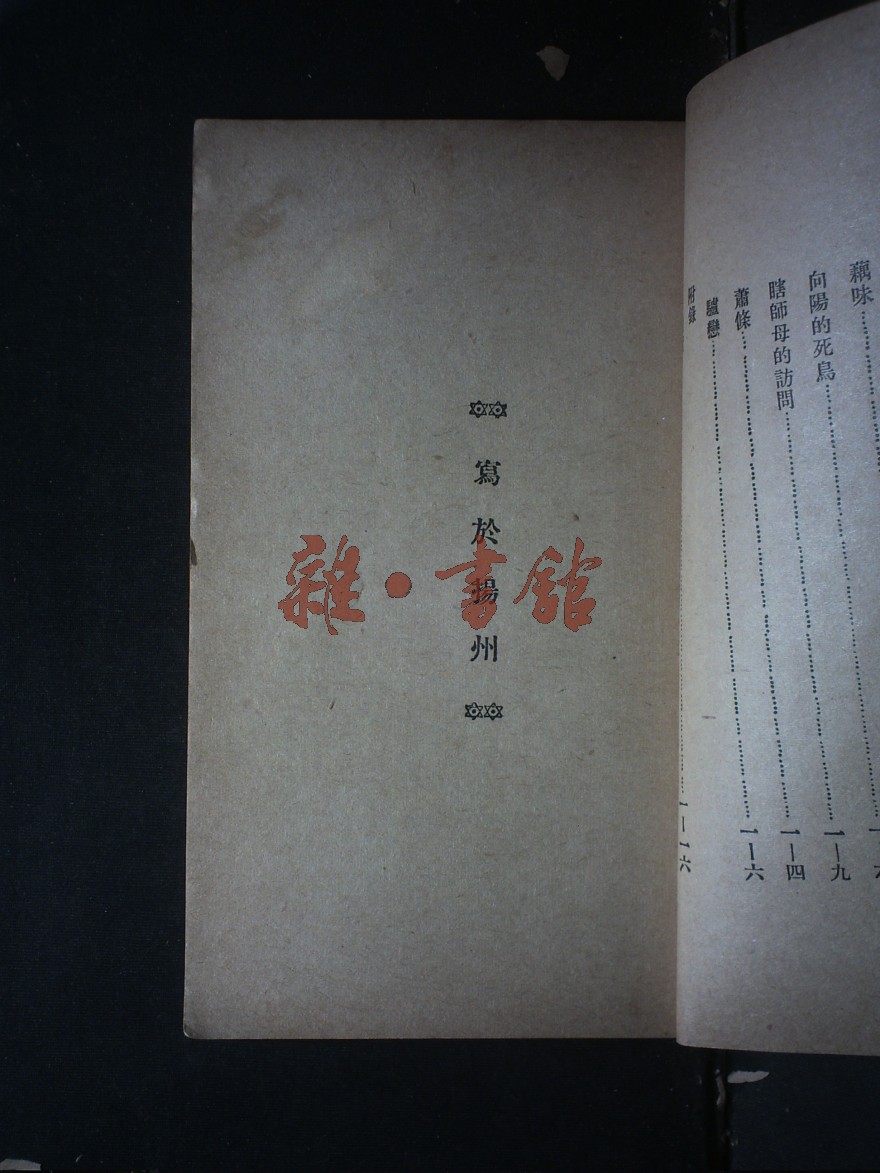 藕味………
向陽的死鳥………
瞎師母的訪問………一—九
蕭條………一—四
驢戀………一—六
附錄………一—一六
寫於揚州
雜·書館